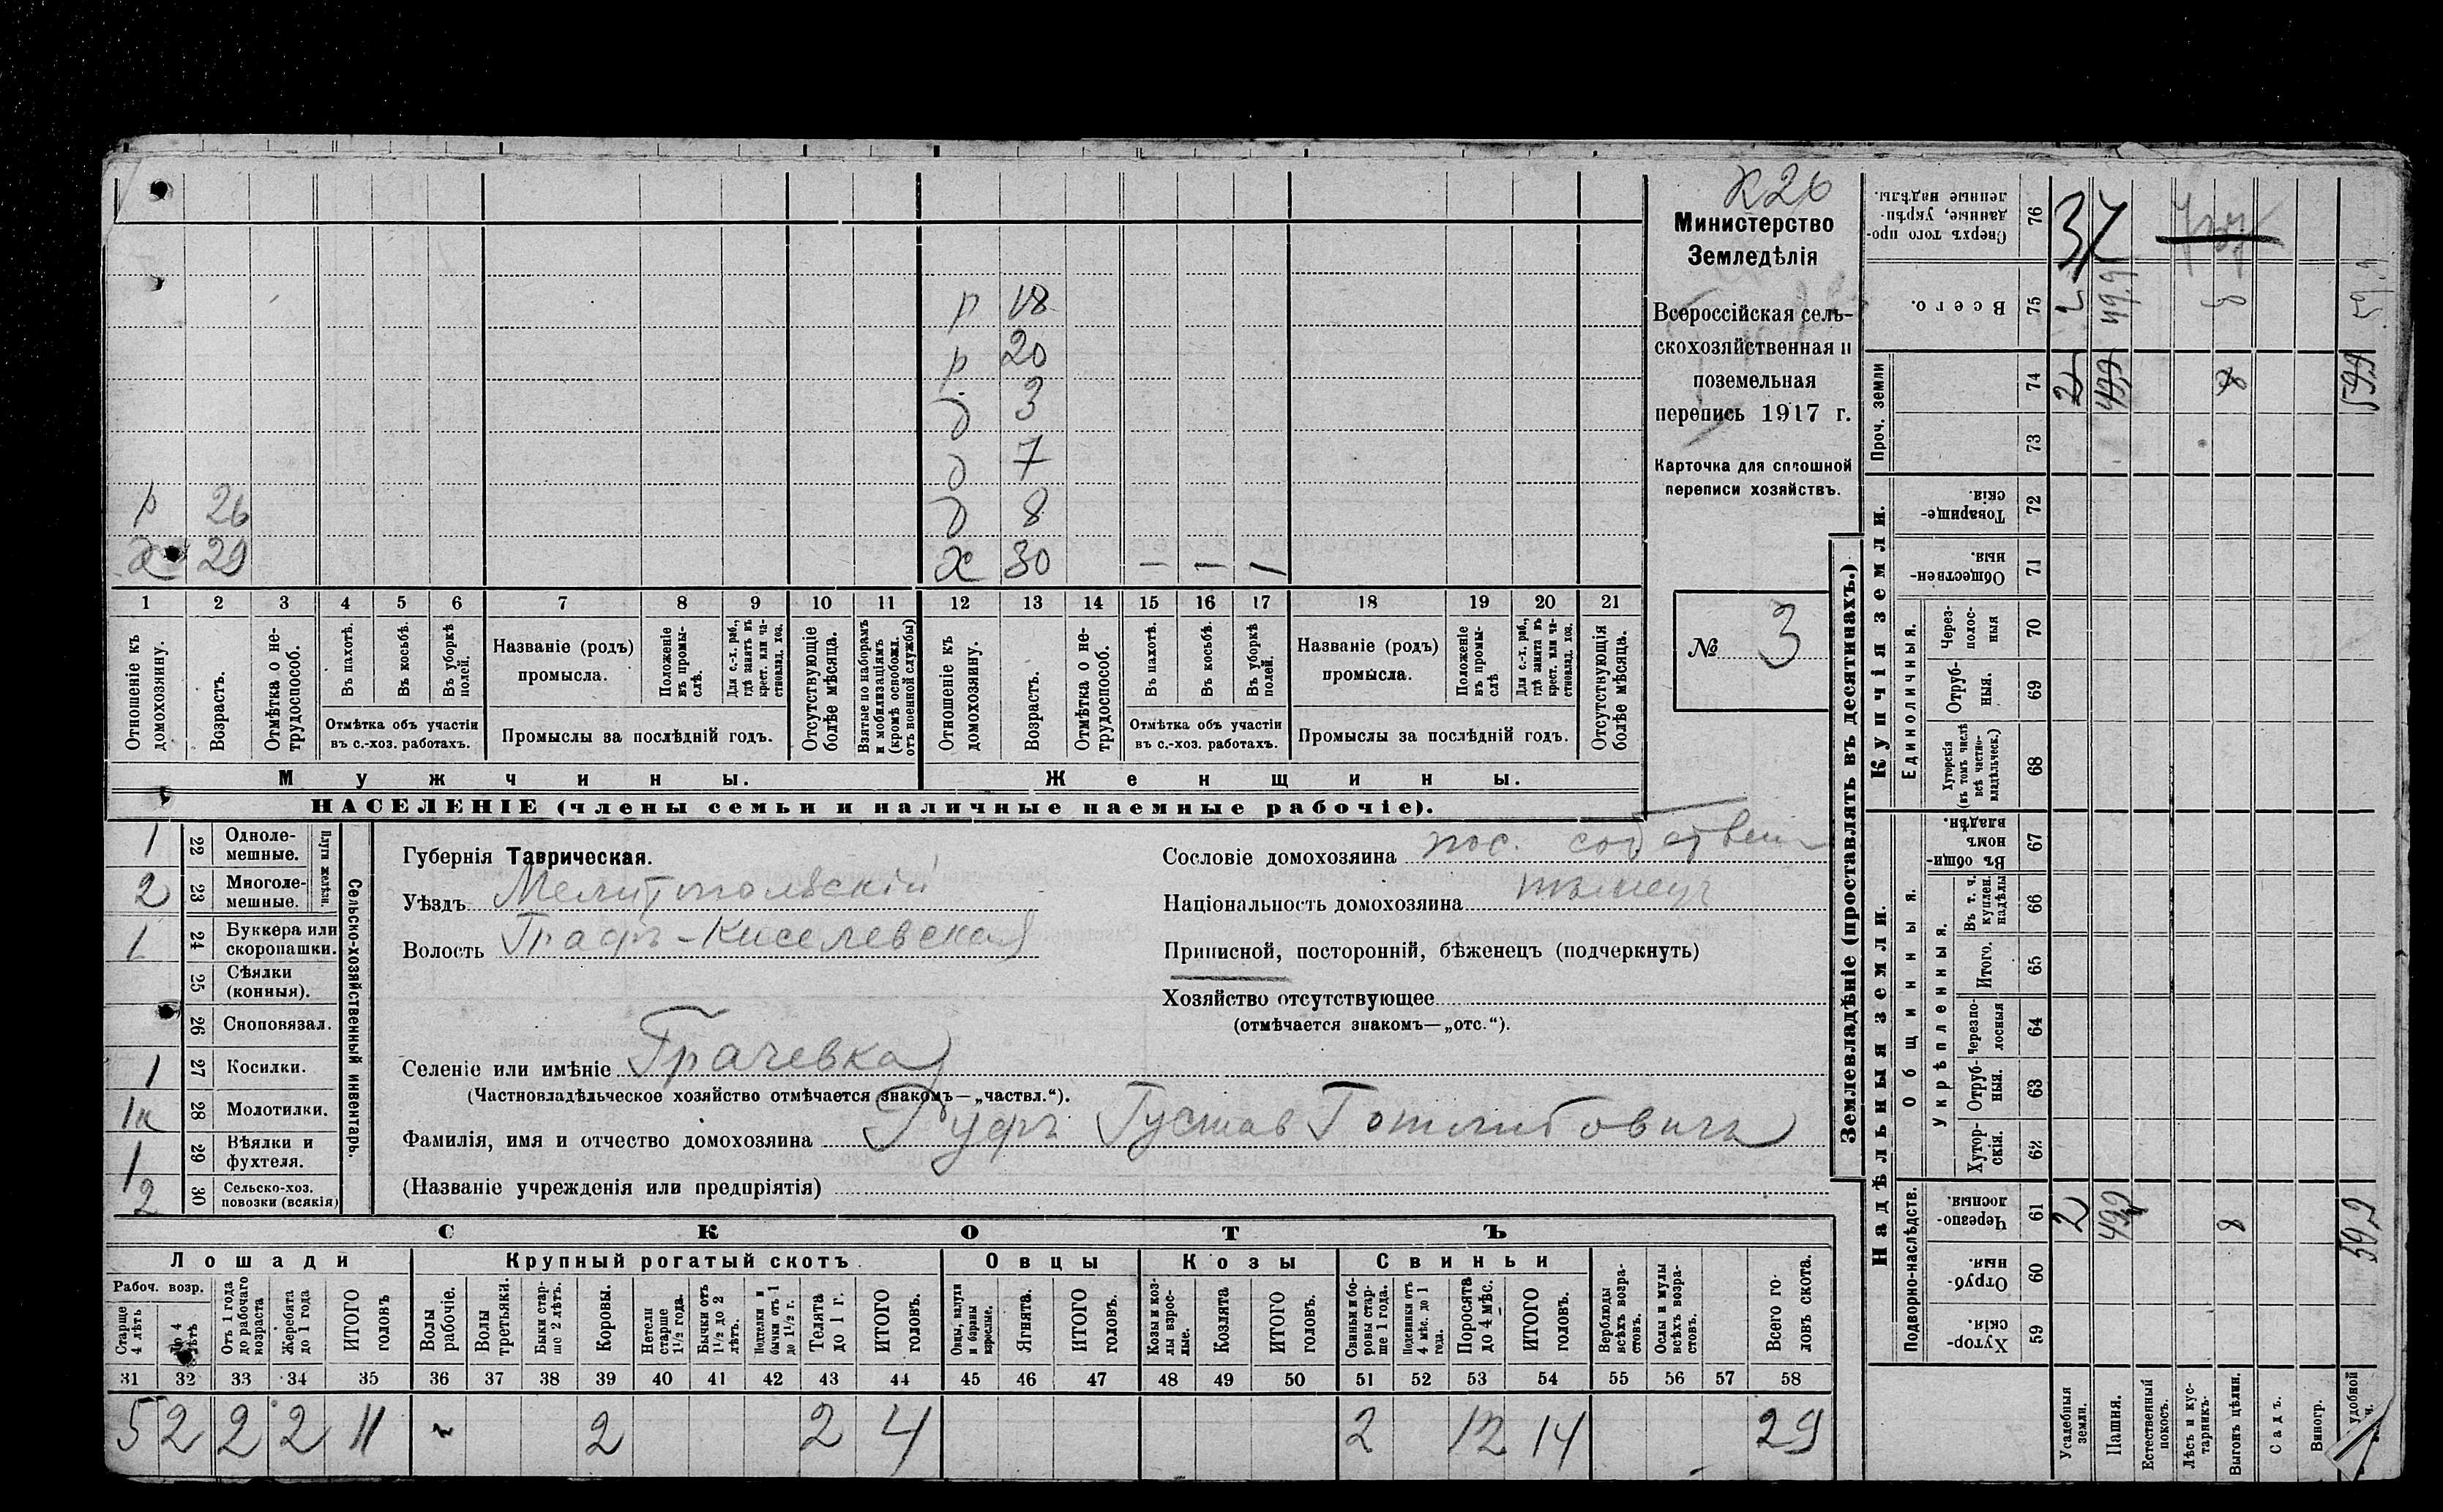 К26
Министерство
Земледѣлія
Всероссійская сель-
скохозяйственная и
поземельная
перепись 1917 г.
Карточка для сплошной
переписи хозяйствъ.
№ 3
р 18
р 20
д 3
д 7
д 8
р 26
х 29
х 30 — — —
1 2 3 4 5 6 7 8 9 10 11 12 13 14 15 16 17 18 19 20 21
Отношеніе къ домохозяину.
Возрастъ.
Отмѣтка о не-трудоспособ.
Въ пахотѣ.
Въ косьбѣ.
Въ уборкѣ полей.
Отмѣтка объ участіи въ с.-хоз. работахъ.
Названіе (родъ) промысла.
Положеніе въ промы-слѣ.
Для с.-х. раб., гдѣ занятъ въ крест. или ча-стновлад. хоз.
Промыслы за послѣдній годъ.
Отсутствующіе болѣе мѣсяца.
Взятые по наборамъ и мобилизаціямъ (кромѣ освобожд. отъ военной службы)
Отношеніе къ домохозяину.
Возрастъ.
Отмѣтка о не-трудоспособ.
Въ пахотѣ.
Въ косьбѣ.
Въ уборкѣ полей.
Отмѣтка объ участіи въ с.-хоз. работахъ.
Названіе (родъ) промысла.
Положеніе въ промы-слѣ
Для с.-х. раб., гдѣ занятъ въ крест. или ча-стновлад. хоз.
Промыслы за послѣдній годъ.
Отсутствующія болѣе мѣсяца.
Мужчины. Женщины.
НАСЕЛЕНІЕ (члены семьи и наличные наемные рабочіе).
1 22 Одноле-мешные.
2 23 Многоле-мешные.
Плуги желѣзн.
1 24 Буккера или скоропашки.
25 Сѣялки (конныя).
26 Сноповязал.
1 27 Косилки.
1к 28 Молотилки.
1 29 Вѣялки и фухтеля.
2 30 Сельско-хоз. повозки (всякія)
Сельско-хозяйственный инвентарь.
Губернія Таврическая.
Уѣздъ Мелитопольскій
Волость Графъ-Киселевская
Сословіе домохозяина пос. собствен
Національность домохозяина нѣмецъ
Приписной, посторонній, бѣженецъ (подчеркнуть)
Хозяйство отсутствующее
(отмѣчается знакомъ—„отс.“).
Селеніе или имѣніе Грачевка
(Частновладѣльческое хозяйство отмѣчается знакомъ—„частвл.“).
Фамилія, имя и отчество домохозяина Руфъ Густав Готлибовичъ
(Названіе учрежденія или предпріятія)
СКОТЪ
Лошади Крупный рогатый скотъ Овцы Козы Свиньи
Рабоч. возр.
Старше 4 лѣтъ
До 4 лѣтъ
Отъ 1 года до рабочаго возраста
Жеребята до 1 года
ИТОГО головъ
Волы рабочіе.
Волы третьяки.
Быки стар-ше 2 лѣтъ.
Коровы.
Нетели старше 1½ года.
Бычки отъ 1½ до 2 лѣтъ.
Подтелки и бычки отъ 1 до 1½ г.
Телята до 1 г.
ИТОГО головъ.
Овцы, валухи и бараны взрослые.
Ягнята.
ИТОГО головъ.
Козы и коз-лы взрос-лые.
Козлята
ИТОГО головъ.
Свиньи и бо-ровы стар-ше 1 года.
Подсвинки отъ 4 мѣс. до 1 года.
Поросята до 4 мѣс.
ИТОГО головъ.
Верблюды всѣхъ возра-стовъ.
Ослы и мулы всѣхъ возра-стовъ.
Всего го-ловъ скота.
31 32 33 34 35 36 37 38 39 40 41 42 43 44 45 46 47 48 49 50 51 52 53 54 55 56 57 58
5 2 2 2 11 2 2 4 2 12 14 29
Землевладѣніе (проставлять въ десятинахъ.)
Надѣльныя земли. Купчія земли. Проч. земли
Подворно-наслѣдств. Общинныя. Укрѣпленныя. Единоличныя.
59 Хутор-скія.
60 Отруб-ныя.
61 Черезпо-лосныя.
62 Хутор-скія.
63 Отруб-ныя.
64 Черезпо-лосныя
65 Итого.
66 Въ т. ч. куплен. надѣлы
67 Въ общи-номъ владѣн.
68 Хуторскія (въ томъ числѣ всѣ частно-владѣльческ.)
69 Отруб-ныя.
70 Через-полос-ныя
71 Обществен-ныя.
72 Товарище-скія.
73
74
75 Всего.
76 Сверхъ того про-данные, укрѣп-ленные надѣлы.
Усадебныя земли.
Пашня.
Естественный покосъ.
Лѣсъ и кус-тарникъ.
Выгонъ цѣлин.
Садъ.
Виногр.
удобной
2 49,9 8 59,9
2 49,9 8 59,9
2 49,9 8 59,9
37